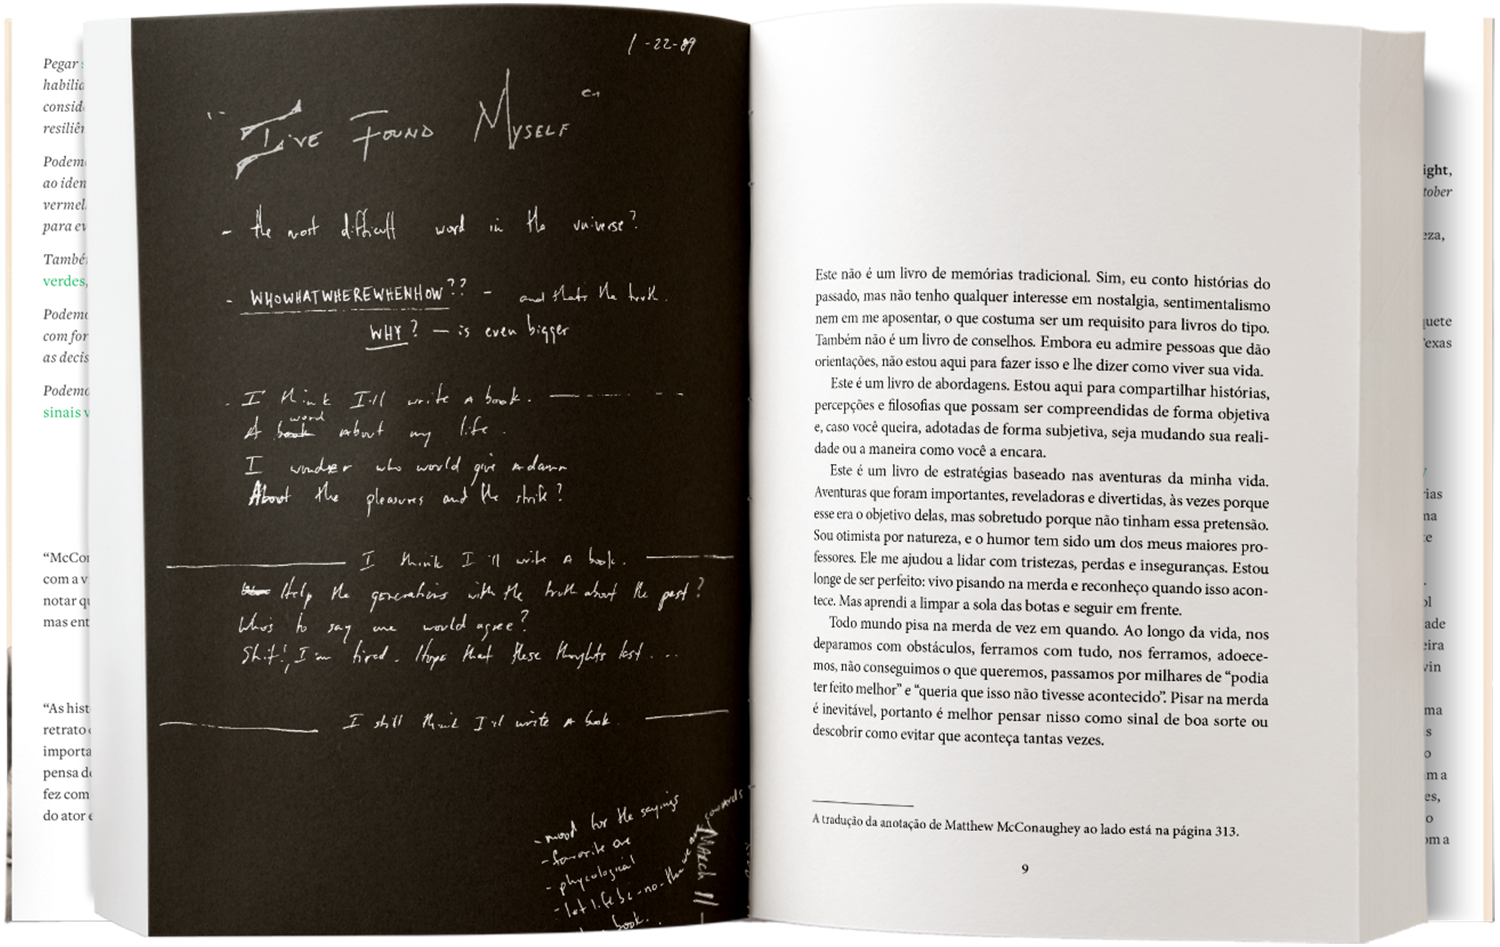 Pegar
habilid
consid
resiliên
Podemo
ao iden
vermel
para ev
També
verdes,
Podemo
com for
as decis
Podemo
sinais v
“McCon
com a v
notar qu
mas ent
“As hist
retrato
importa
pensa de
fez com
do ator e
1-22-89
"I've Found Myself"
- the most difficult word in the universe?
- WHOWHATWHEREWHENHOW?? - and that's the truth.
WHY? - is even bigger
- I think I'll write a book.
word
A book about my life.
I wonder who would give a damn
About the pleasures and the strife?
I think I'll write a book.
Help the generations with the truth about the past?
Who's to say one would agree?
Shit!, I'm tired. Hope that these thoughts last...
I still think I'll write a book.
- mood for the sayings
- favorite are
- phycological
- let life be -no-
book.
cowards
MARCH 11 -
Este não é um livro de memórias tradicional. Sim, eu conto histórias do
passado, mas não tenho qualquer interesse em nostalgia, sentimentalismo
nem em me aposentar, o que costuma ser um requisito para livros do tipo.
Também não é um livro de conselhos. Embora eu admire pessoas que dão
orientações, não estou aqui para fazer isso e lhe dizer como viver sua vida.
Este é um livro de abordagens. Estou aqui para compartilhar histórias,
percepções e filosofias que possam ser compreendidas de forma objetiva
e, caso você queira, adotadas de forma subjetiva, seja mudando sua reali-
dade ou a maneira como você a encara.
Este é um livro de estratégias baseado nas aventuras da minha vida.
Aventuras que foram importantes, reveladoras e divertidas, às vezes porque
esse era o objetivo delas, mas sobretudo porque não tinham essa pretensão.
Sou otimista por natureza, e o humor tem sido um dos meus maiores pro-
fessores. Ele me ajudou a lidar com tristezas, perdas e inseguranças. Estou
longe de ser perfeito: vivo pisando na merda e reconheço quando isso acon-
tece. Mas aprendi a limpar a sola das botas e seguir em frente.
Todo mundo pisa na merda de vez em quando. Ao longo da vida, nos
deparamos com obstáculos, ferramos com tudo, nos ferramos, adoece-
mos, não conseguimos o que queremos, passamos por milhares de “podia
ter feito melhor” e “queria que isso não tivesse acontecido”. Pisar na merda
é inevitável, portanto é melhor pensar nisso como sinal de boa sorte ou
descobrir como evitar que aconteça tantas vezes.
A tradução da anotação de Matthew McConaughey ao lado está na página 313.
9
ight,
tober
eza,
quete
Texas
y
rias
na
te
ol
ade
eira
vin
ma
s
o
m a
es,
o
om a